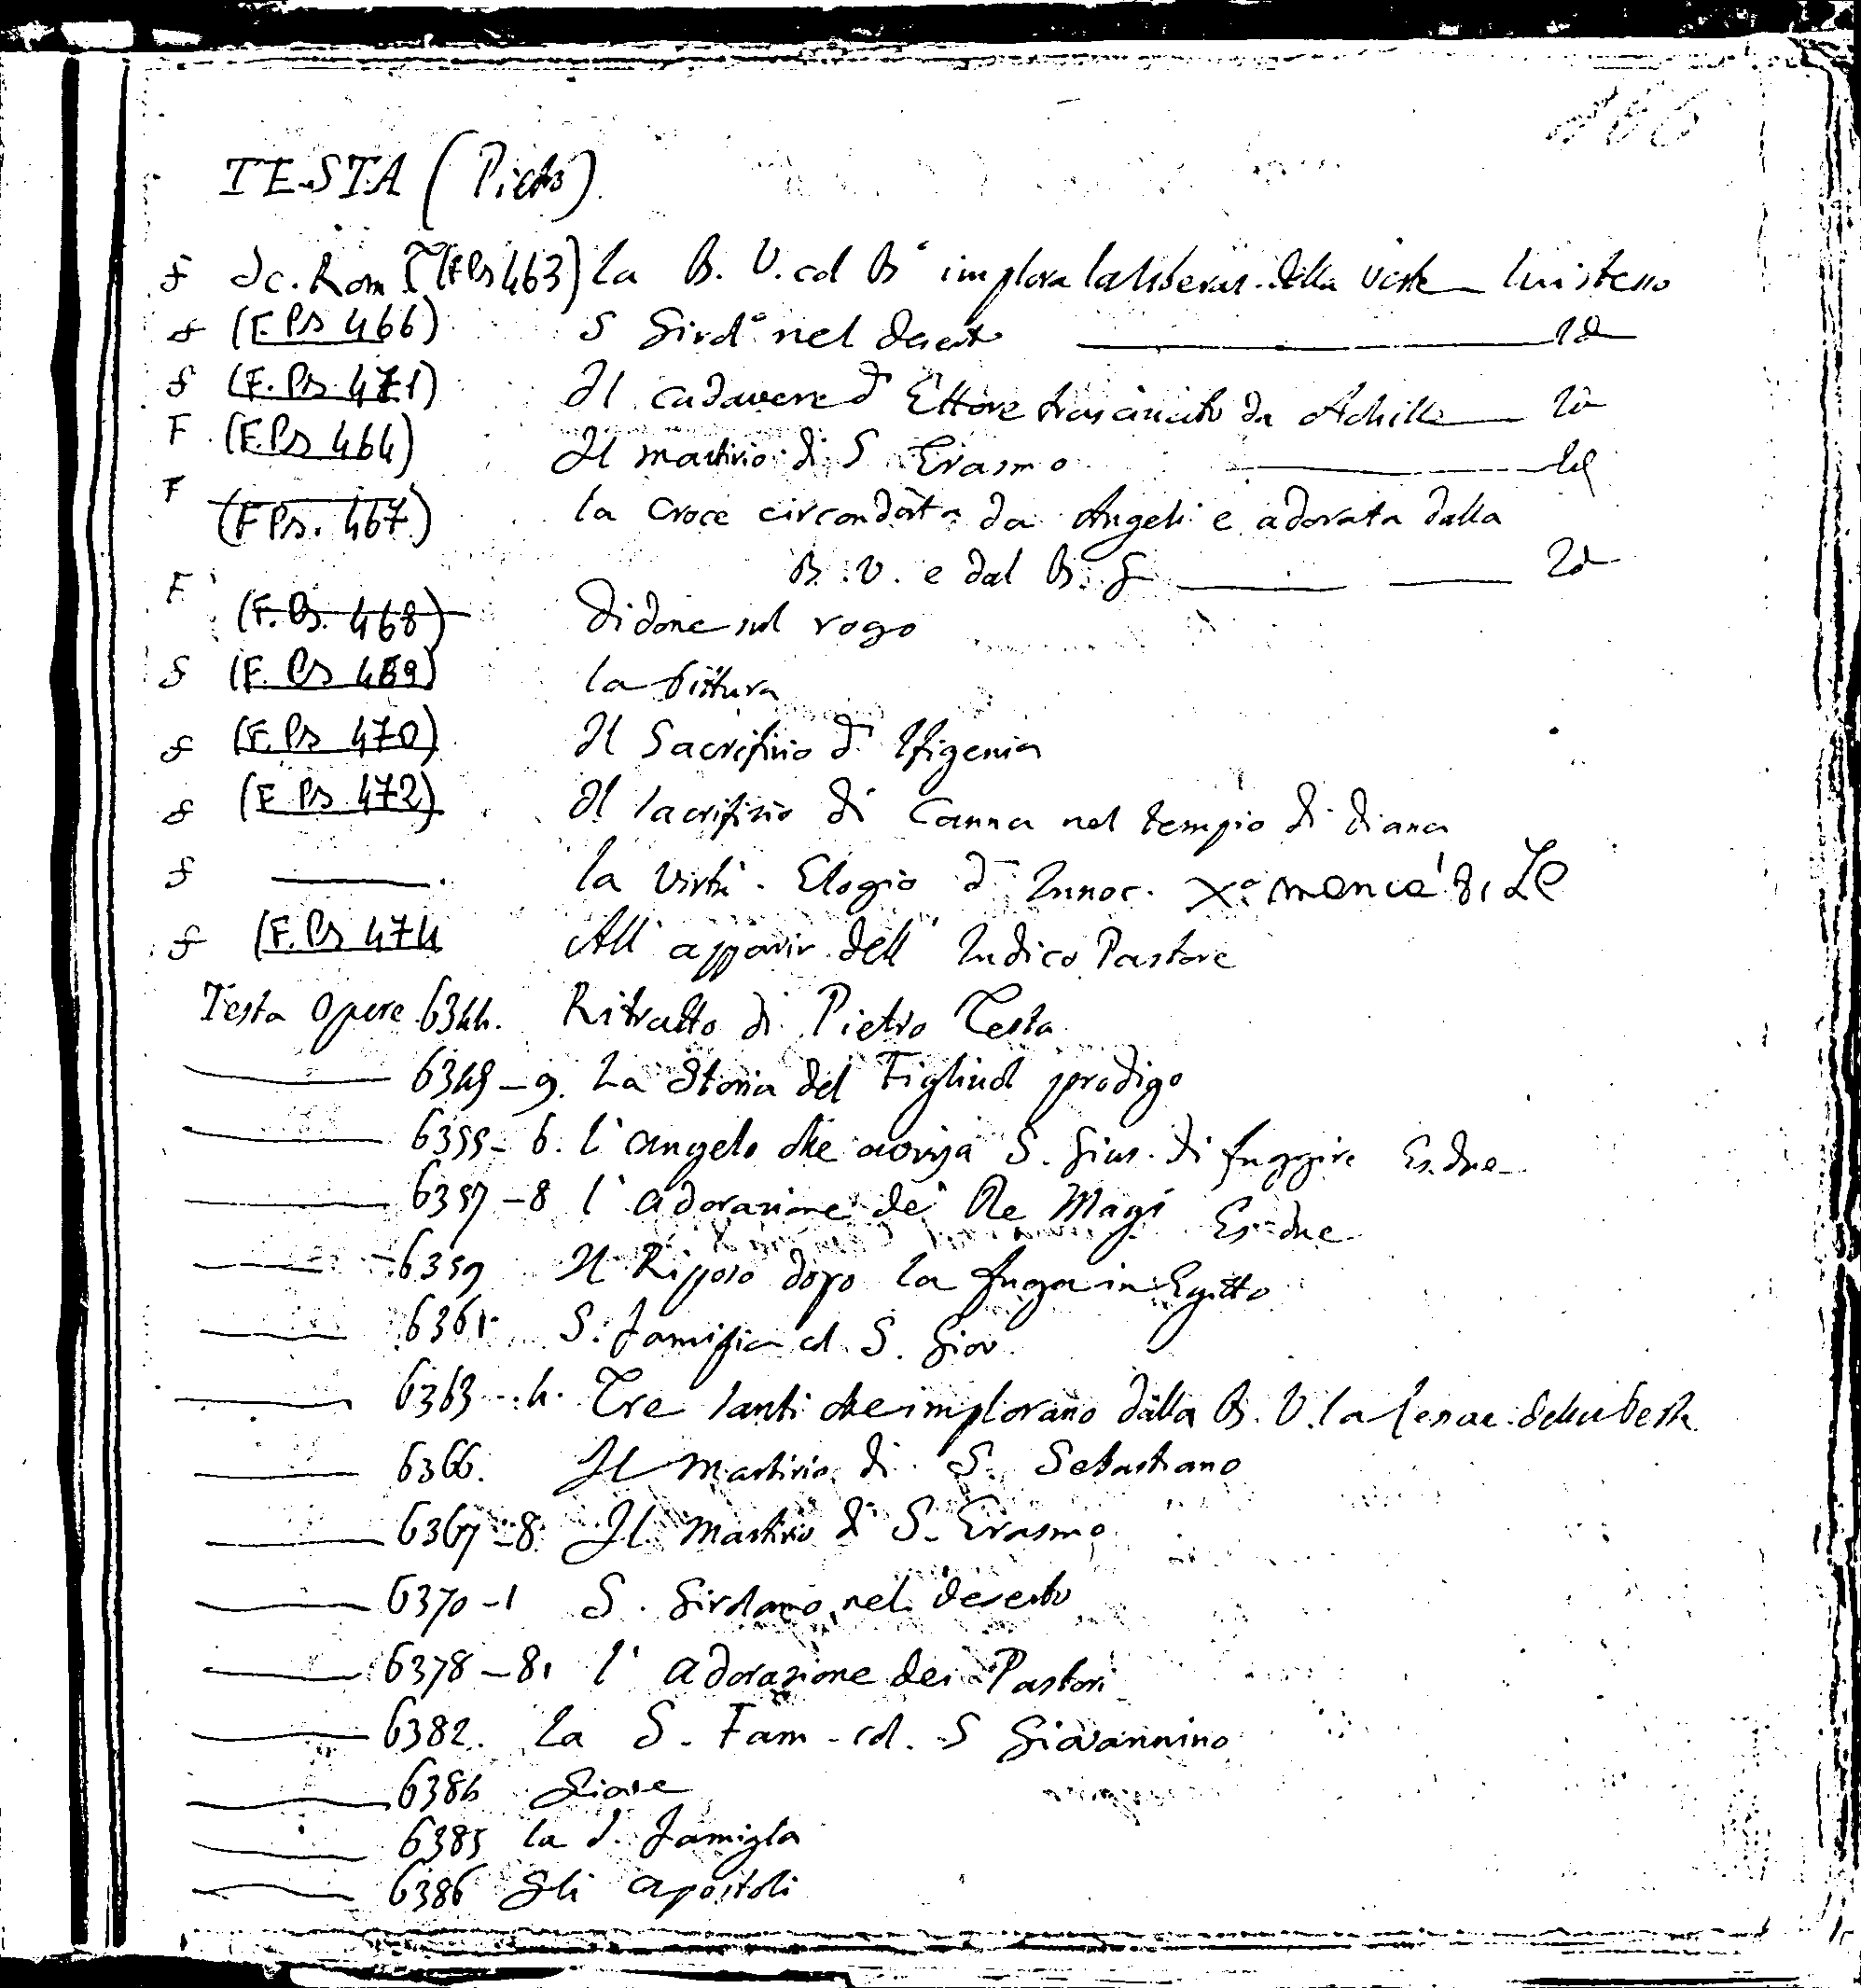 186
TESTA (Pietro)
F Sc. Rom I (F Ps 463) la B. V. col Bº implora la liberaz. della peste — lui stesso
F (F Ps 466) S Girolº nel deserto — Id
F (F. Ps. 471) Il cadavere d' Ettore trascinato da Achille — Id
F (F. Ps 464) Il martirio di S Erasmo — Id
F (F Ps. 467) la croce circondata da Angeli e adorata dalla
B. V. e dal B. G — Id
F (F. Ps. 468) Didone sul rogo
F (F. Ps 469) la Pittura
F (F. Ps 470) Il Sacrifizio d' Ifigenia
F (F Ps 472) Il sacrifizio di Canna nel tempio di Diana
F — la Virtù. Elogio d' Innoc. Xº manca
F (F. Ps 474 All' apparir dell' Indico Pastore
Testa Opere 6344. Ritratto di Pietro Testa
— 6345-9. La Storia del Figliuol prodigo
— 6355-6. l' angelo che avvisa S. Gius. di fuggire Es. due
— 6357-8 l' adorazione de' Re Magi Es. due
— 6359 Il Riposo dopo la fuga in Egitto
— 6361. S. Famiglia col S. Giov.
— 6363-4. Tre santi che implorano dalla B. V. la della Peste
— 6366. Il martirio di S. Sebastiano
— 6367-8. Il Martirio di S. Erasmo
— 6370-1 S. Girolamo nel deserto
— 6378-81 l' adorazione dei Pastori
— 6382. La S. Fam. col. S Giovannino
— 6384 Giove
— 6385 la S. Famigla
— 6386 Gli apostoli